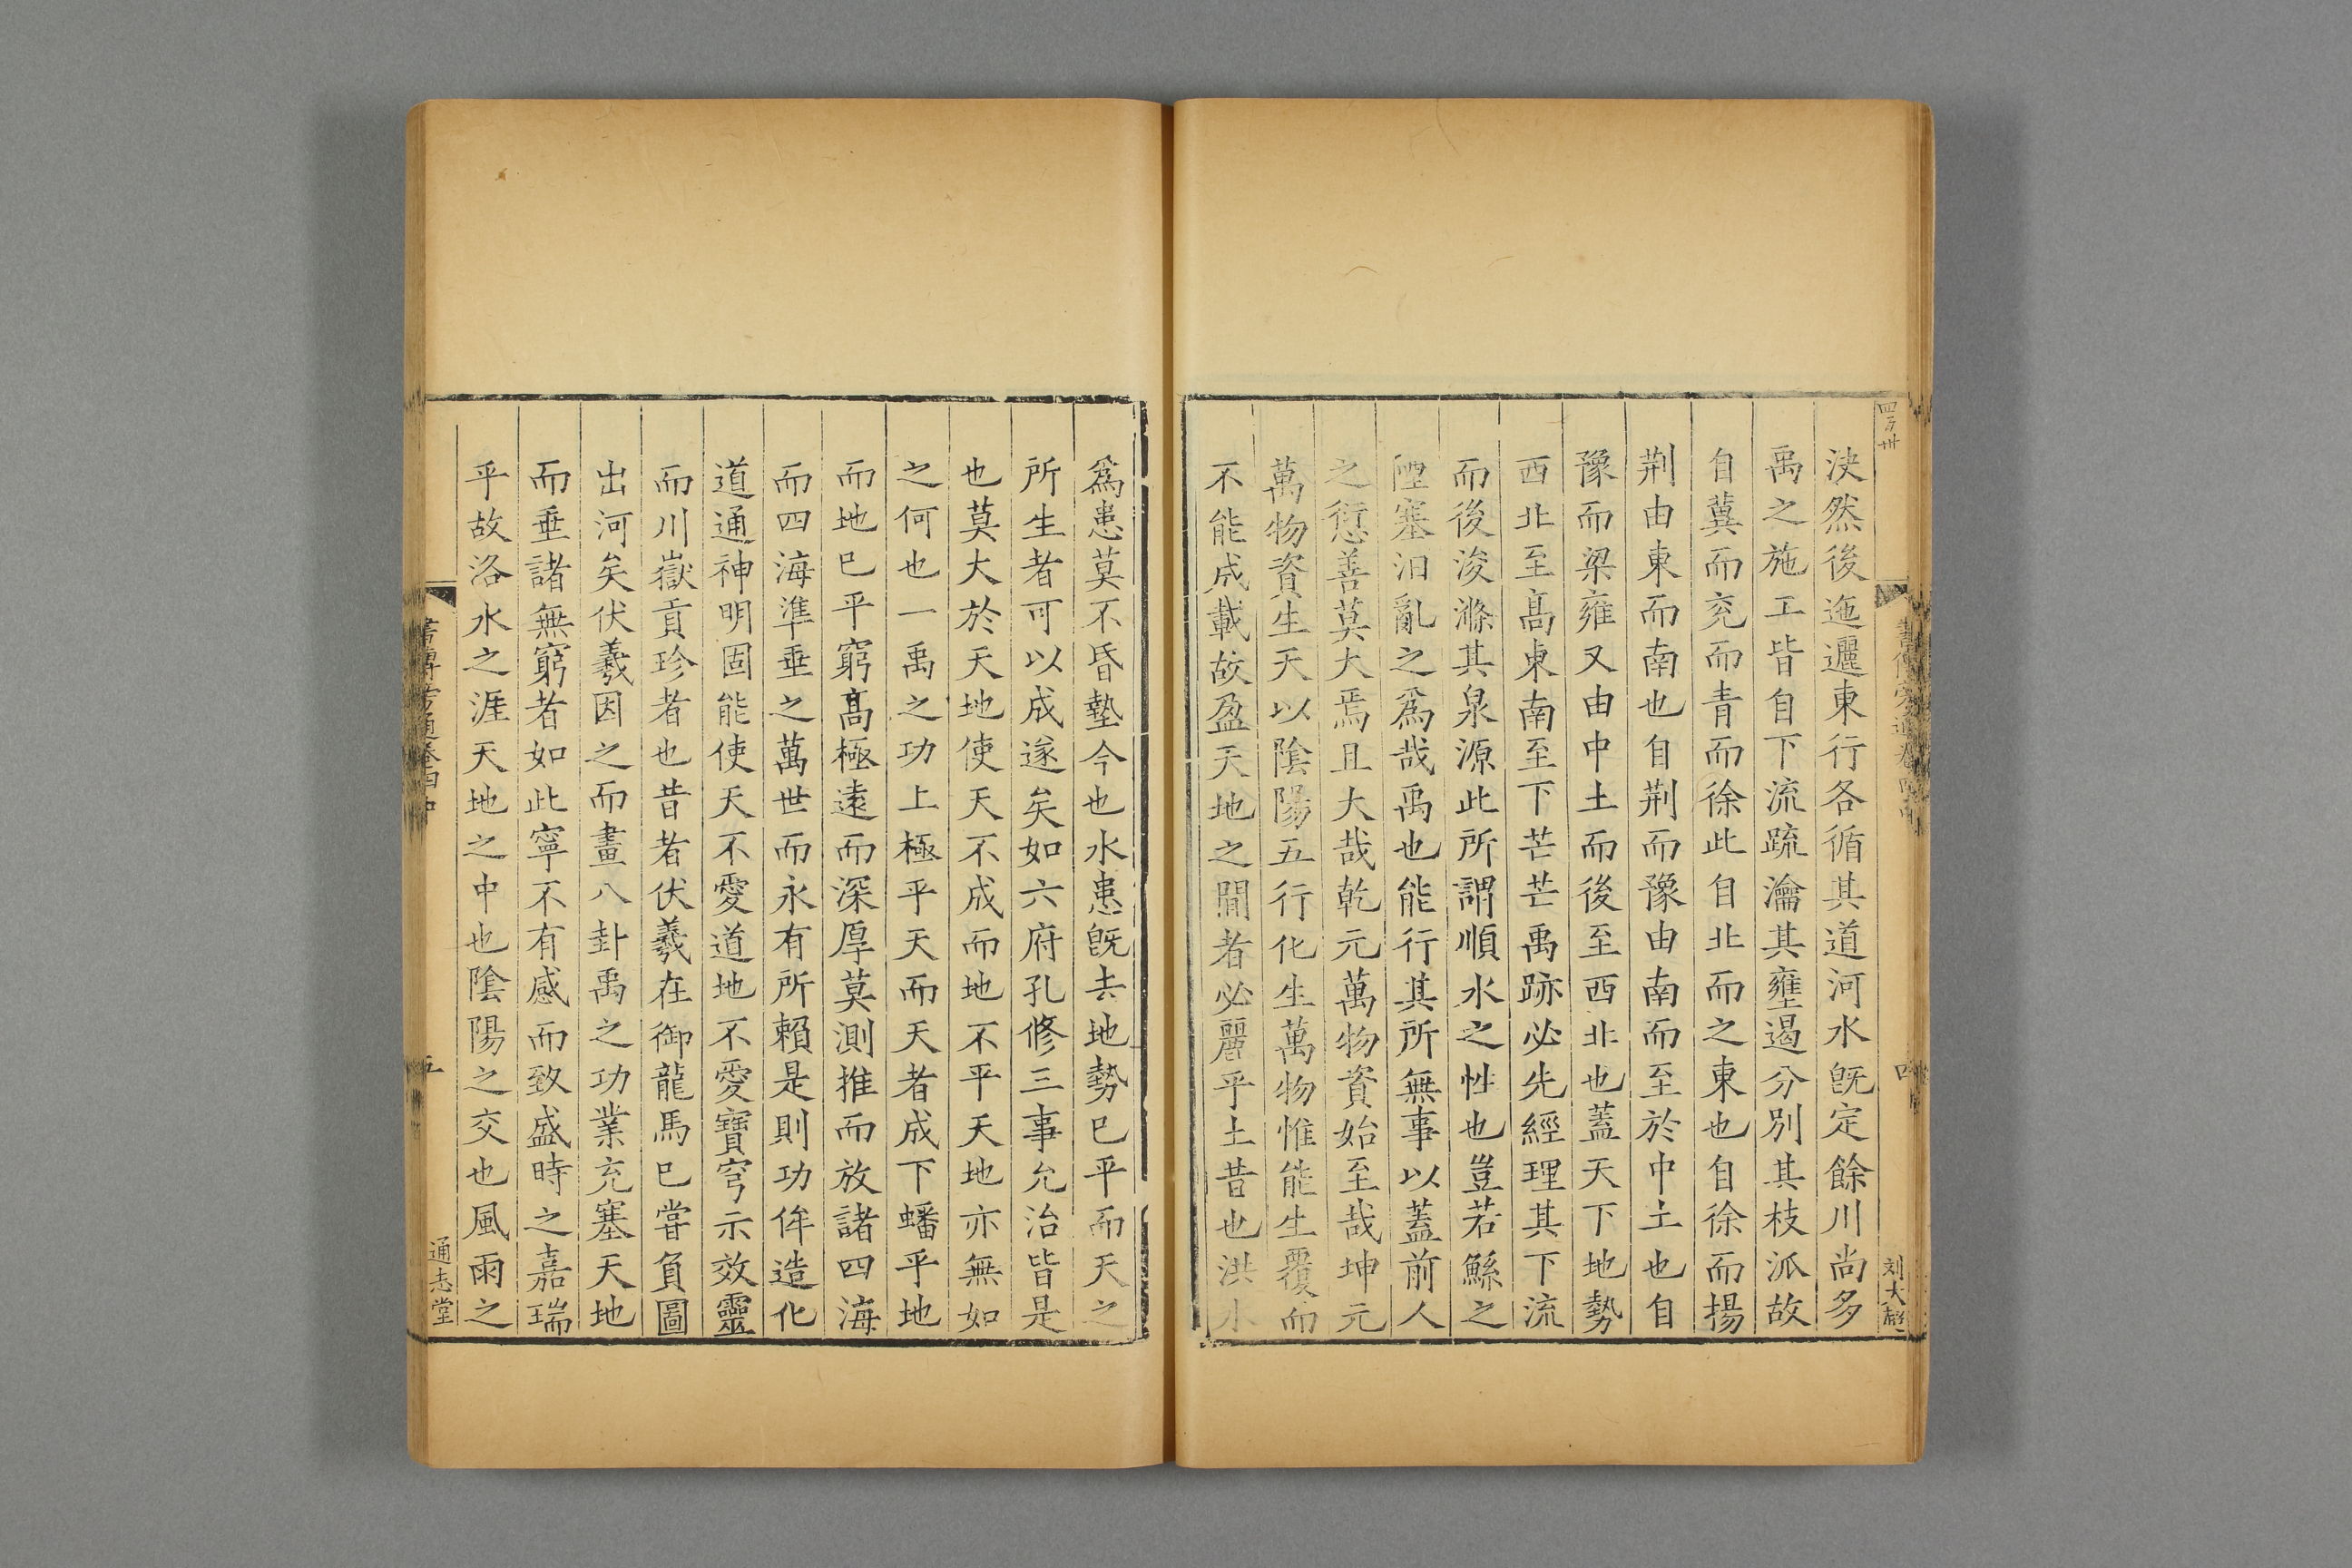 決然後迤邐東行各循其道河水旣定餘川尚多
禹之施工皆自下流疏瀹其壅遏分别其枝派故
自冀而兖而青而徐此自北而之東也自徐而揚
荆由東而南也自荆而豫由南而至於中土也自
豫而梁雍又由中土而後至西北也蓋天下地勢
西北至髙東南至下芒芒禹跡必先經理其下流
而後浚滌其泉源此所謂順水之性也豈若鯀之
堙塞汨亂之爲哉禹也能行其所無事以蓋前人
之愆善莫大焉且大哉乾元萬物資始至哉坤元
萬物資生天以隂陽五行化生萬物惟能生覆而
不能成載故盈天地之間者必麗乎土昔也洪水
爲患莫不昏墊今也水患旣去地勢巳平而天之
所生者可以成遂矣如六府孔修三事允治皆是
也莫大於天地使天不成而地不平天地亦無如
之何也一禹之功上極乎天而天者成下蟠乎地
而地巳平窮髙極遠而深厚莫測推而放諸四海
而四海準垂之萬世而永有所賴是則功侔造化
道通神明固能使天不愛道地不愛寳穹示效靈
而川嶽貢珍者也昔者伏羲在御龍馬巳嘗負圖
出河矣伏羲因之而畫八卦禹之功業充塞天地
而垂諸無窮者如此寧不有感而致盛時之嘉瑞
乎故洛水之涯天地之中也隂陽之交也風雨之
通志堂